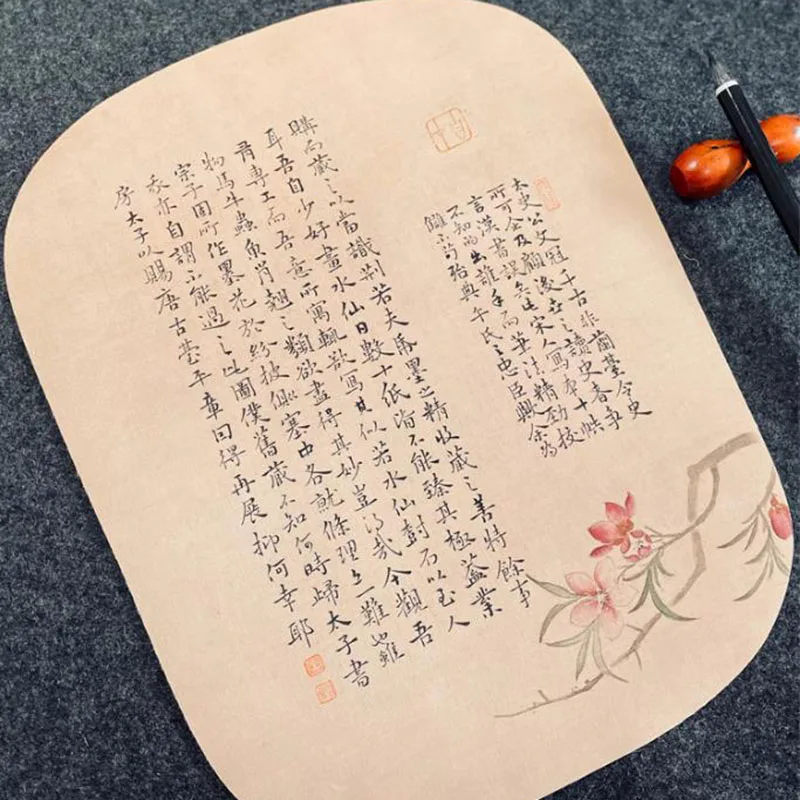 太史公文冠千古非蘭臺令史
所可企及顧後世之讀史者爭
言漢書誤矣此宋人寫本十帙
不知的出誰手而筆法精勁校
讎不苟殆典午氏之忠臣與余為
購而藏之以當識荆若夫紙墨之精收藏之善特餘事
耳吾自少好畫水仙日數十紙皆不能臻其極蓋業
有專工而吾意所寓輒欲寫其似若水仙樹石以至人
物馬牛蟲魚肖翹之類欲盡得其妙豈可得哉今觀吾
宗子固所作墨花於紛披側塞中各就條理亦一難也雖
我亦自謂不能過之此圖僕舊藏不知何時歸太子書
房太子以賜唐古臺平章因得再展抑何幸耶